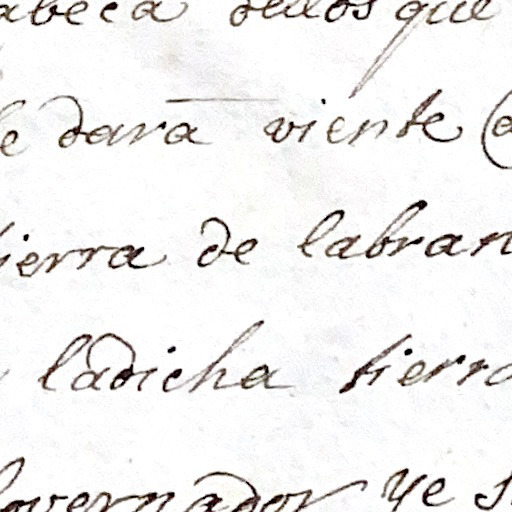 abeca dellos que
le dara viente (a
tierra de labran
ladicha tierra
Governador ye s